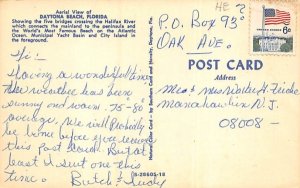 Aerial View of
DAYTONA BEACH, FLORIDA
Showing the five bridges crossing the Halifax River
which connects the mainland to the peninsula and
the World's Most Famous Beach on the Atlantic
Ocean. Municipal Yacht Basin and City Island in
the foreground.
Hi:-
Having a wonderful time
the weather has been
sunny and warm. 75-80°
average. We will probably
be home before you receive
this Post Card. But at
least I sent one this
time.
Butch & Judy
HE ?
P.O. Box 93°
OAK AVE.
6c
POST CARD
Address
Mr & Mrs Walter H.
Manahawkin N.J.
08008-
S-28605-18